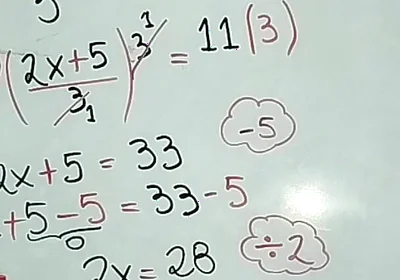 (2x+5/3 1) 3 1 = 11(3)
-5
2x+5 = 33
+5-5 = 33-5
0
2x = 28
÷2